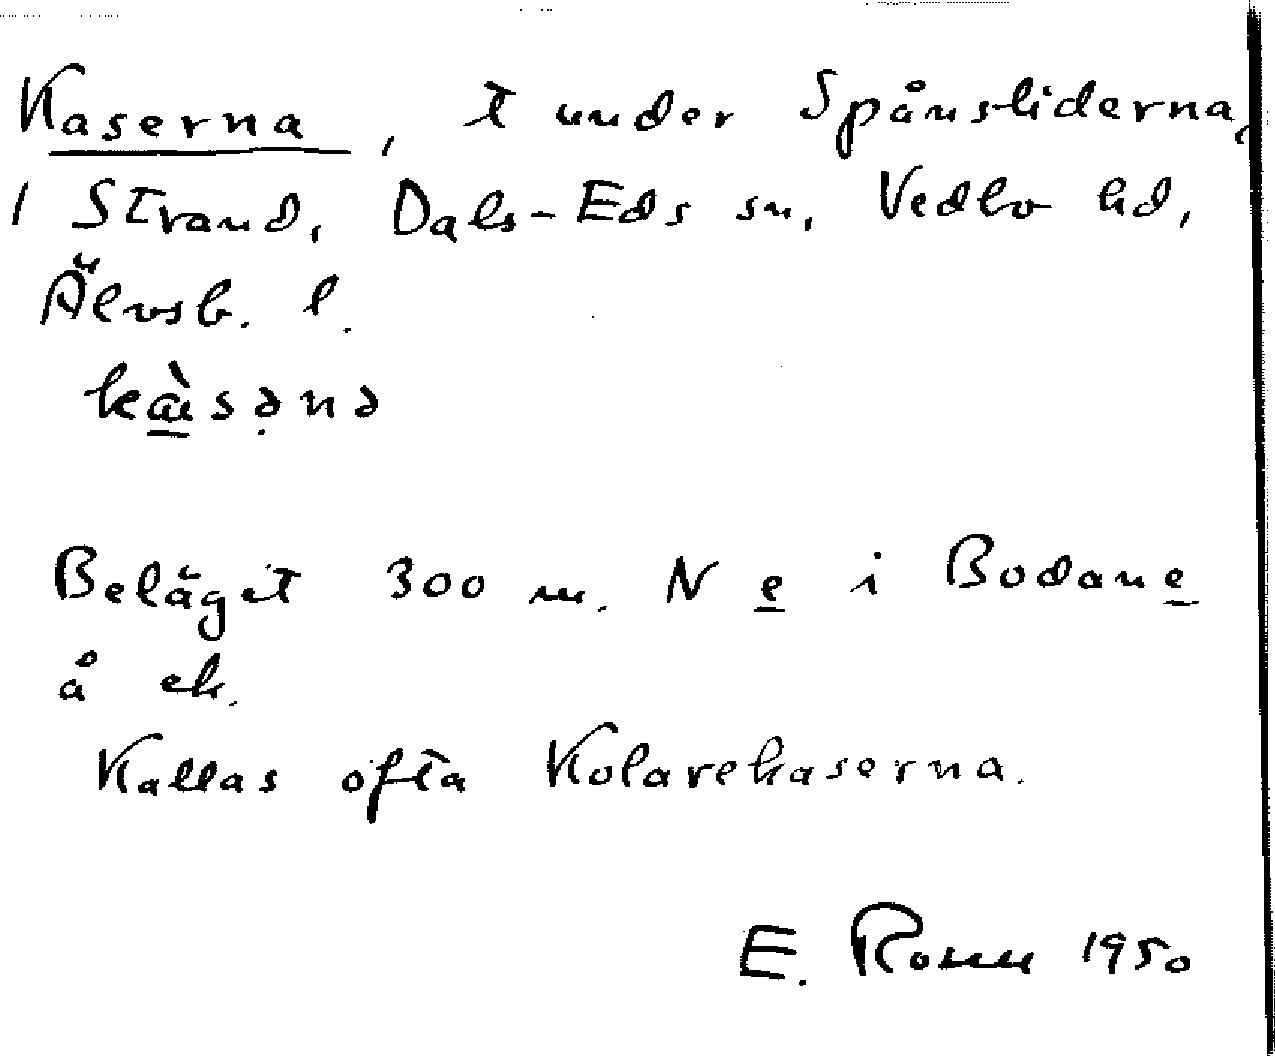 Kaserna, t under Spånsliderna,
1 Strand, Dals-Eds sn, Vedbo hd,
Älvsb. l.
kæ̀sənə
Beläget 300 m. N e i Bodane
å ek.
Kallas ofta Kolarekaserna.
E. 1950